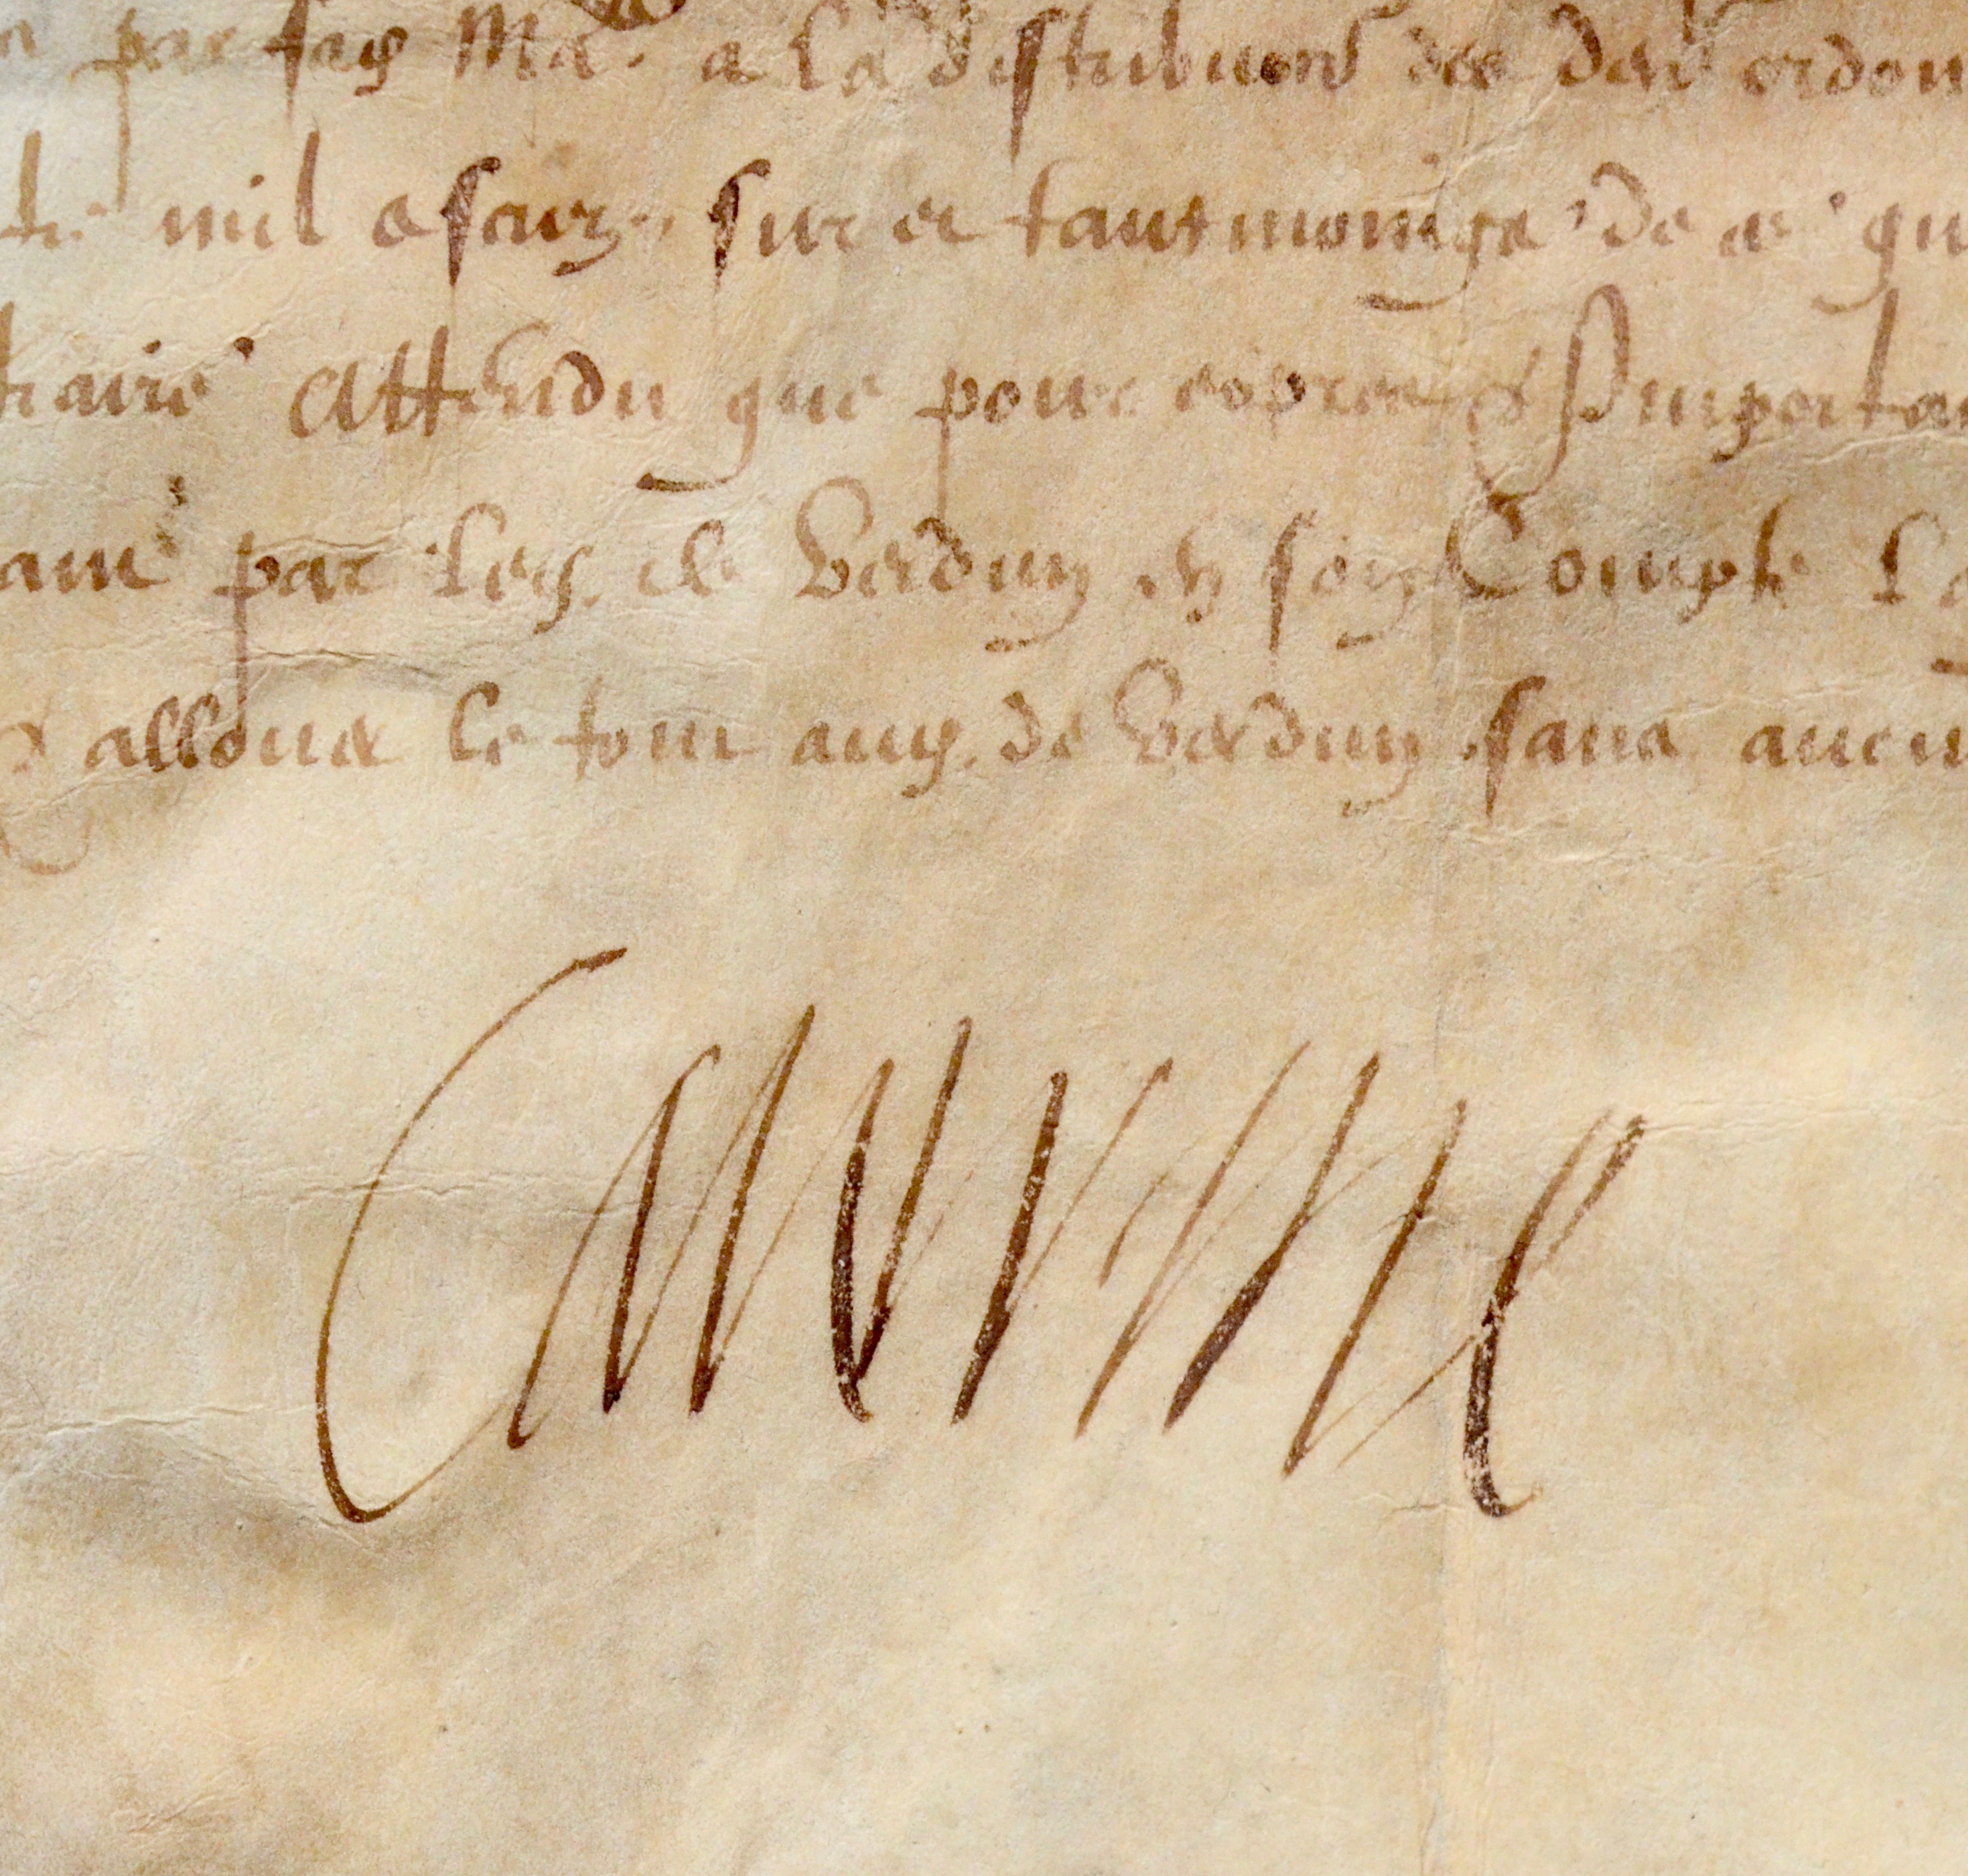 par sa Ma. a la distribution des den ordon
mil escuz sur et tantmoings de ce qu
traire Attendu que pour
par led. de Verdun en son Compte
allouer le tout aud. de Verdun sans aucun
Caterine